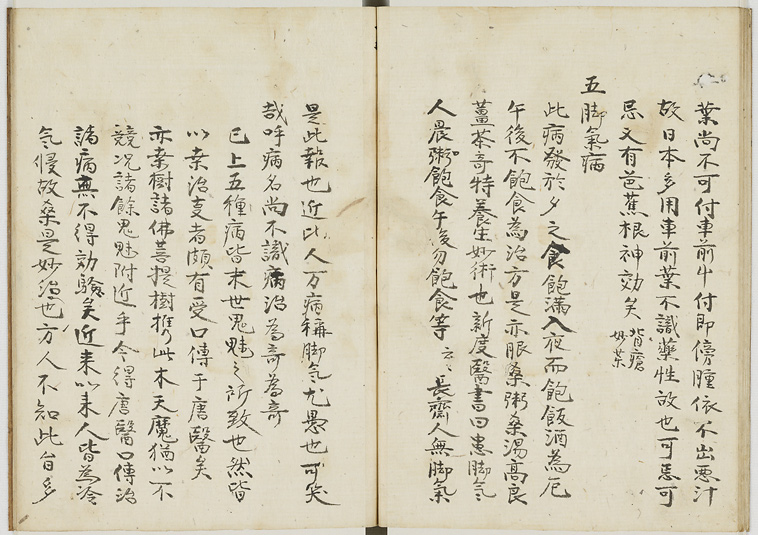 葉尚不可付車前牛付即傍腫依不出悪汁
故日本多用車前葉不識藥性故也可忌可
忌又有芭蕉根神効矣 背瘡
妙藥
五脚氣病
此病發於夕之食飽滿入夜而飽飯酒為厄
午後不飽食為治方是亦服桑粥桑湯高良
薑茶奇特養生妙術也新度醫書曰患脚气
人晨粥飽食午後勿飽食等云々長齋人無脚氣
是此報也近比人万病稱脚气尤愚也可笑
哉呼病名尚不識病治為奇為奇
已上五種病皆末世鬼魅之所致也然皆
以桒治叓者頗有受口傳于唐醫矣
亦桒樹諸佛菩提樹携此木天魔猶以不
競况諸餘鬼魅附近乎今得唐醫口傳治
諸病無不得効驗矣近来以来人皆為冷
气侵故桑是妙治也方人不知此旨多